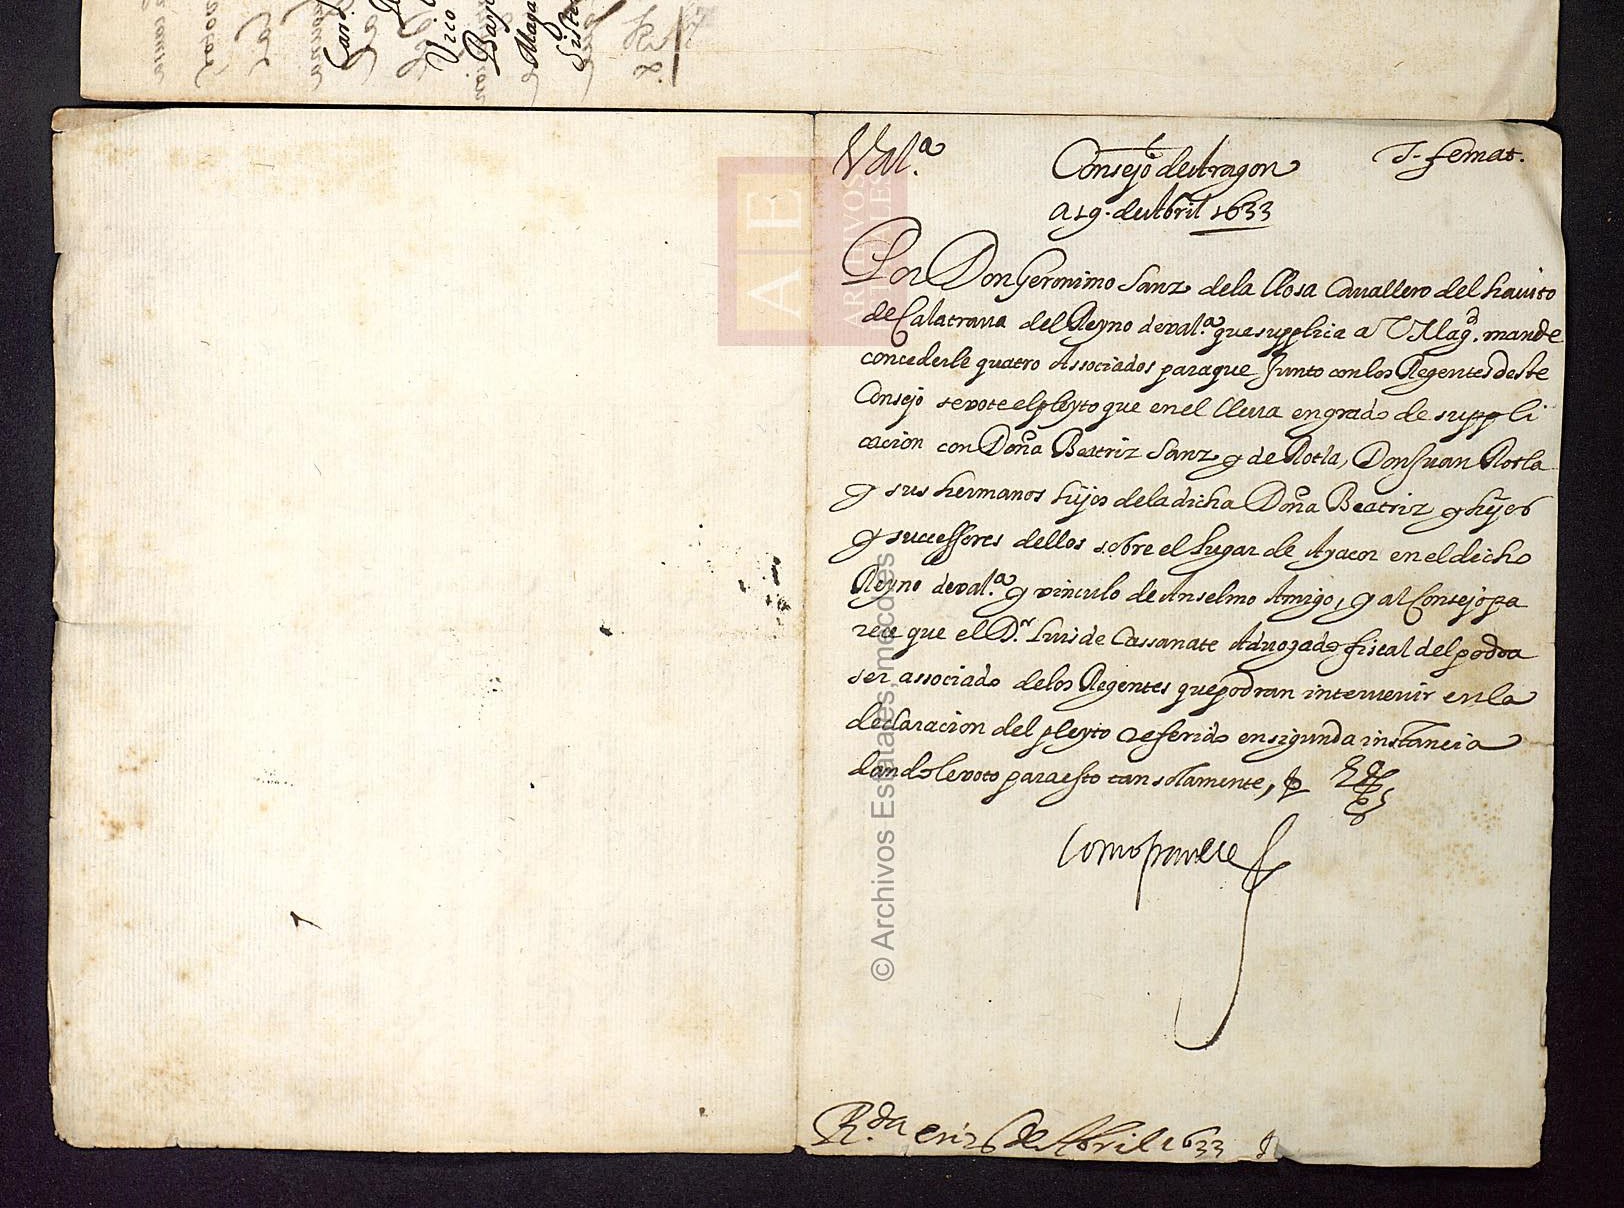 Val.ª
Consejo de Aragon
J. femat.
a 19. de Abril 1633
Por Don Geronimo Sanz de la Llosa Cavallero del havito
de Calatraua del Reyno de Val.ª que supplica a V Mag.d mande
concederle quatro Associados para que Junto con los Regentes deste
Consejo se vote el pleyto que en el lleua en grado de suppli
cacion con Doña Beatriz Sanz y de Rotla, Don Juan Rotla
y sus hermanos hijos de la dicha Doña Beatriz y hijos
y successores dellos sobre el lugar de Ayacor en el dicho
Reyno de Val.ª y vinculo de Anselmo Amigo, y al Consejo pa
rece que el D.r Luis de Cassanate Aduogado fiscal del podra
ser associado de los Regentes que podran interuenir en la
declaracion del pleyto referido en sigunda instancia
dandole voto para esto tan solamente,
Como parece
R.da en 26 de Abril 1633
AE
ARCHIVOS
ESTATALES
© Archivos Estatales, mecd.es